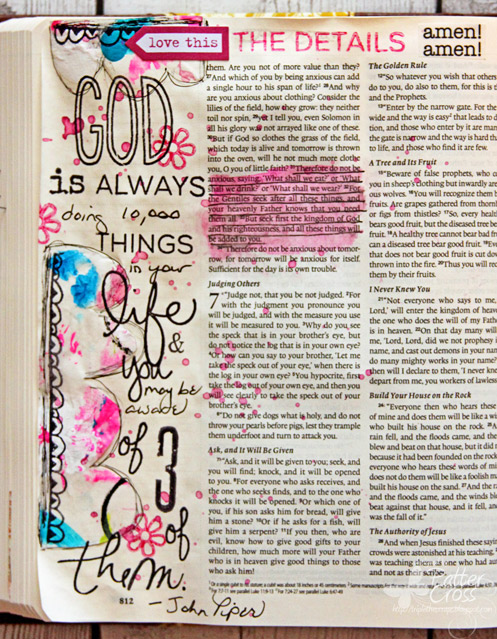 love this
THE DETAILS
amen!
amen!
GOD
is ALWAYS
doing 10,000
THINGS
in your
life
&
you
may be
aware
of
3
of
them.
- John Piper
812
them. Are you not of more value than they?
27And which of you by being anxious can add
a single hour to his span of life? 28And why
are you anxious about clothing? Consider the
lilies of the field, how they grow: they neither
toil nor spin, 29yet I tell you, even Solomon in
all his glory was not arrayed like one of these.
30But if God so clothes the grass of the field,
which today is alive and tomorrow is thrown
into the oven, will he not much more clothe
you, O you of little faith? 31Therefore do not be
anxious, saying, 'What shall we eat?' or 'What
shall we drink?' or 'What shall we wear?' 32For
the Gentiles seek after all these things, and
your heavenly Father knows that you need
them all. 33But seek first the kingdom of God
and his righteousness, and all these things will
be added to you.
34"Therefore do not be anxious about tomor-
row, for tomorrow will be anxious for itself.
Sufficient for the day is its own trouble.
Judging Others
7 "Judge not, that you be not judged. 2For
with the judgment you pronounce you
will be judged, and with the measure you use
it will be measured to you. 3Why do you see
the speck that is in your brother's eye, but
do not notice the log that is in your own eye?
4Or how can you say to your brother, 'Let me
take the speck out of your eye,' when there is
the log in your own eye? 5You hypocrite, first
take the log out of your own eye, and then you
will see clearly to take the speck out of your
brother's eye.
6"Do not give dogs what is holy, and do not
throw your pearls before pigs, lest they trample
them underfoot and turn to attack you.
Ask, and It Will Be Given
7"Ask, and it will be given to you; seek, and
you will find; knock, and it will be opened
to you. 8For everyone who asks receives, and
the one who seeks finds, and to the one who
knocks it will be opened. 9Or which one of
you, if his son asks him for bread, will give
him a stone? 10Or if he asks for a fish, will
give him a serpent? 11If you then, who are
evil, know how to give good gifts to your
children, how much more will your Father
who is in heaven give good things to those
who ask him!
The Golden Rule
12"So whatever you wish that others
do to you, do also to them, for this is t
and the Prophets.
13"Enter by the narrow gate. For the
wide and the way is easy that leads to d
tion, and those who enter by it are man
the gate is narrow and the way is hard th
to life, and those who find it are few.
A Tree and Its Fruit
15"Beware of false prophets, who c
you in sheep's clothing but inwardly are
ous wolves. 16You will recognize them b
fruits. Are grapes gathered from thornb
or figs from thistles? 17So, every healt
bears good fruit, but the diseased tree be
fruit. 18A healthy tree cannot bear bad fr
can a diseased tree bear good fruit. 19E
that does not bear good fruit is cut dow
thrown into the fire. 20Thus you will rec
them by their fruits.
I Never Knew You
21"Not everyone who says to me,
Lord,' will enter the kingdom of heave
the one who does the will of my Fathe
is in heaven. 22On that day many will
me, 'Lord, Lord, did we not prophesy i
name, and cast out demons in your nam
do many mighty works in your name?'
then will I declare to them, 'I never knew
depart from me, you workers of lawless
Build Your House on the Rock
24"Everyone then who hears these
of mine and does them will be like a wi
who built his house on the rock. 25A
rain fell, and the floods came, and the
blew and beat on that house, but it did n
because it had been founded on the rock
everyone who hears these words of min
does not do them will be like a foolish ma
built his house on the sand. 27And the r
and the floods came, and the winds ble
beat against that house, and it fell, an
was the fall of it."
The Authority of Jesus
28And when Jesus finished these sayin
crowds were astonished at his teaching,
was teaching them as one who had aut
and not as their scribes.